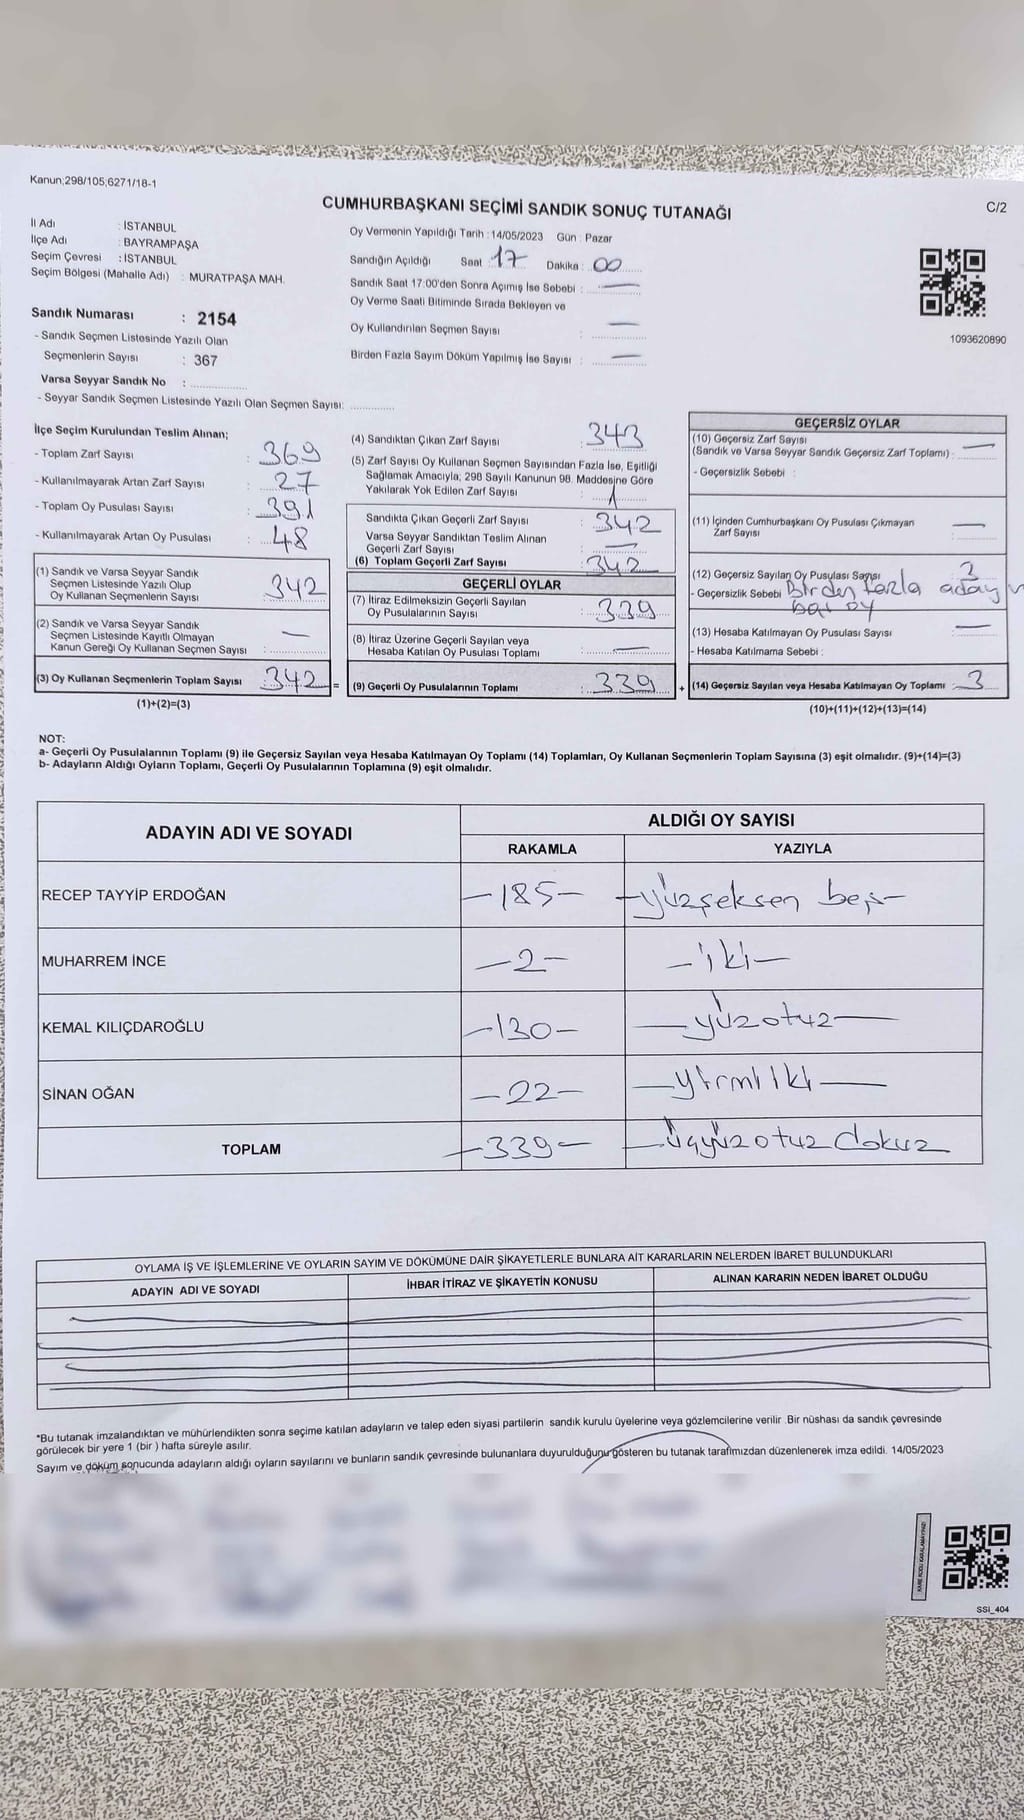 Kanun;298/105;6271/18-1
CUMHURBAŞKANI SEÇİMİ SANDIK SONUÇ TUTANAĞI
C/2
İl Adı : İSTANBUL
İlçe Adı : BAYRAMPAŞA
Seçim Çevresi : İSTANBUL
Seçim Bölgesi (Mahalle Adı) : MURATPAŞA MAH.
Sandık Numarası : 2154
- Sandık Seçmen Listesinde Yazılı Olan
Seçmenlerin Sayısı : 367
Varsa Seyyar Sandık No :
- Seyyar Sandık Seçmen Listesinde Yazılı Olan Seçmen Sayısı:
Oy Vermenin Yapıldığı Tarih : 14/05/2023 Gün : Pazar
Sandığın Açıldığı Saat 17 Dakika : 00
Sandık Saat 17:00'den Sonra Açımış İse Sebebi : —
Oy Verme Saati Bitiminde Sırada Bekleyen ve
Oy Kullandırılan Seçmen Sayısı : —
Birden Fazla Sayım Döküm Yapılmış İse Sayısı : —
1093620890
İlçe Seçim Kurulundan Teslim Alınan;
- Toplam Zarf Sayısı : 369
- Kullanılmayarak Artan Zarf Sayısı : 27
- Toplam Oy Pusulası Sayısı : 391
- Kullanılmayarak Artan Oy Pusulası : 48
(1) Sandık ve Varsa Seyyar Sandık
Seçmen Listesinde Yazılı Olup
Oy Kullanan Seçmenlerin Sayısı : 342
(2) Sandık ve Varsa Seyyar Sandık
Seçmen Listesinde Kayıtlı Olmayan
Kanun Gereği Oy Kullanan Seçmen Sayısı : —
(3) Oy Kullanan Seçmenlerin Toplam Sayısı : 342 =
(1)+(2)=(3)
(4) Sandıktan Çıkan Zarf Sayısı : 343
(5) Zarf Sayısı Oy Kullanan Seçmen Sayısından Fazla İse, Eşitliği
Sağlamak Amacıyla; 298 Sayılı Kanunun 98. Maddesine Göre
Yakılarak Yok Edilen Zarf Sayısı : 1
Sandıkta Çıkan Geçerli Zarf Sayısı : 342
Varsa Seyyar Sandıktan Teslim Alınan
Geçerli Zarf Sayısı : —
(6) Toplam Geçerli Zarf Sayısı : 342
GEÇERLİ OYLAR
(7) İtiraz Edilmeksizin Geçerli Sayılan
Oy Pusulalarının Sayısı : 339
(8) İtiraz Üzerine Geçerli Sayılan veya
Hesaba Katılan Oy Pusulası Toplamı : —
(9) Geçerli Oy Pusulalarının Toplamı : 339 +
GEÇERSİZ OYLAR
(10) Geçersiz Zarf Sayısı
(Sandık ve Varsa Seyyar Sandık Geçersiz Zarf Toplamı) : —
- Geçersizlik Sebebi :
(11) İçinden Cumhurbaşkanı Oy Pusulası Çıkmayan
Zarf Sayısı : —
(12) Geçersiz Sayılan Oy Pusulası Sayısı 3
- Geçersizlik Sebebi Birden fazla aday
oy
(13) Hesaba Katılmayan Oy Pusulası Sayısı : —
- Hesaba Katılmama Sebebi :
(14) Geçersiz Sayılan veya Hesaba Katılmayan Oy Toplamı : 3
(10)+(11)+(12)+(13)=(14)
NOT:
a- Geçerli Oy Pusulalarının Toplamı (9) ile Geçersiz Sayılan veya Hesaba Katılmayan Oy Toplamı (14) Toplamları, Oy Kullanan Seçmenlerin Toplam Sayısına (3) eşit olmalıdır. (9)+(14)=(3)
b- Adayların Aldığı Oyların Toplamı, Geçerli Oy Pusulalarının Toplamına (9) eşit olmalıdır.
ADAYIN ADI VE SOYADI
ALDIĞI OY SAYISI
RAKAMLA YAZIYLA
RECEP TAYYİP ERDOĞAN —185— —yüzseksen beş—
MUHARREM İNCE —2— —iki—
KEMAL KILIÇDAROĞLU —130— —yüzotuz—
SİNAN OĞAN —22— —yirmiiki—
TOPLAM —339— —üçyüzotuzdokuz
OYLAMA İŞ VE İŞLEMLERİNE VE OYLARIN SAYIM VE DÖKÜMÜNE DAİR ŞİKAYETLERLE BUNLARA AİT KARARLARIN NELERDEN İBARET BULUNDUKLARI
ADAYIN ADI VE SOYADI İHBAR İTİRAZ VE ŞİKAYETİN KONUSU ALINAN KARARIN NEDEN İBARET OLDUĞU
*Bu tutanak imzalandıktan ve mühürlendikten sonra seçime katılan adayların ve talep eden siyasi partilerin sandık kurulu üyelerine veya gözlemcilerine verilir .Bir nüshası da sandık çevresinde
görülecek bir yere 1 (bir ) hafta süreyle asılır.
Sayım ve döküm sonucunda adayların aldığı oyların sayılarını ve bunların sandık çevresinde bulunanlara duyurulduğunu gösteren bu tutanak tarafımızdan düzenlenerek imza edildi. 14/05/2023
KARE KODU KARALAMAYINIZ!
SSİ_404